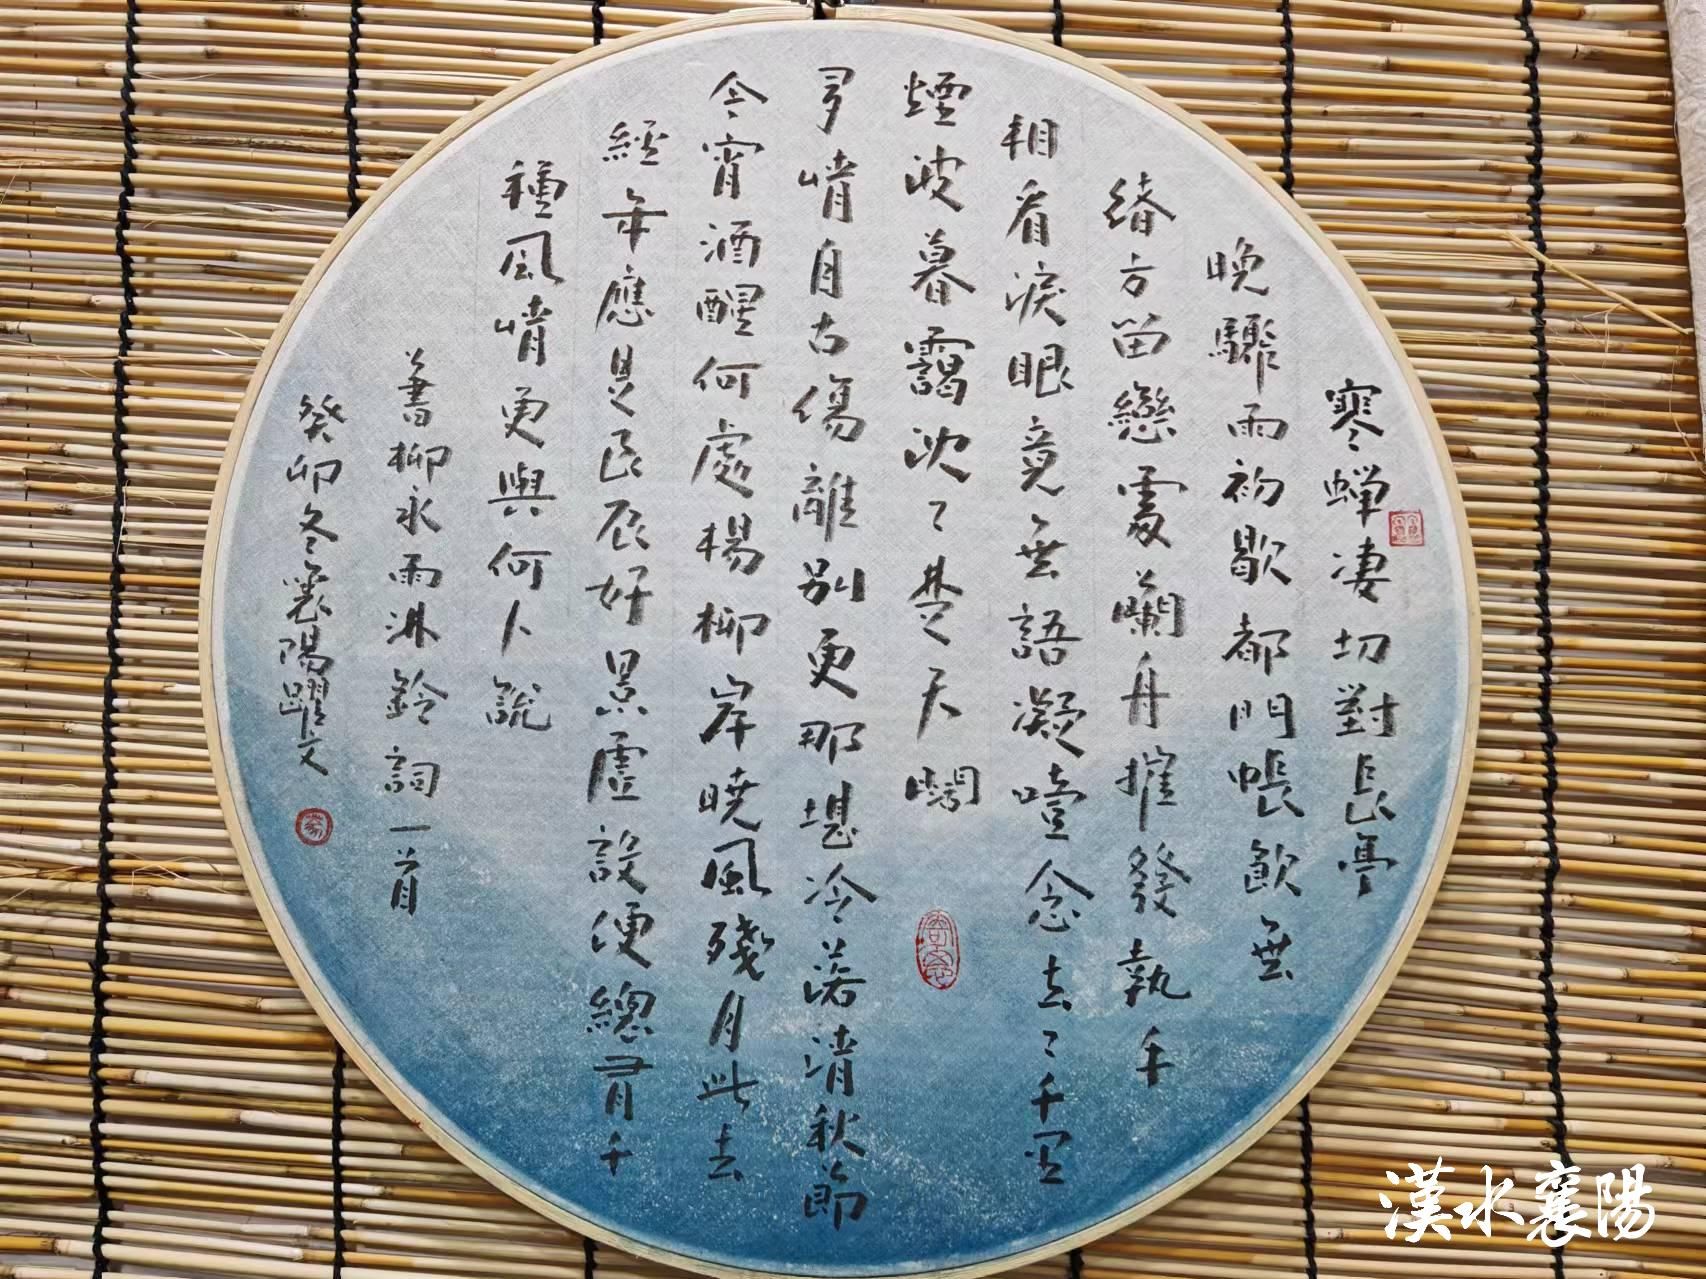 寒蝉凄切對長亭
晚驟雨初歇都門帳飲無
緒方留戀處蘭舟摧發執手
相看淚眼竟無語凝噎念去々千里
煙波暮靄沈々楚天闊
多情自古傷離別更那堪冷落清秋節
今宵酒醒何處楊柳岸曉風殘月此去
經年應是良辰好景虛設便總有千
種風情更與何人說
書柳永雨淋鈴詞一首
癸卯冬襄陽躍文
漢水襄陽